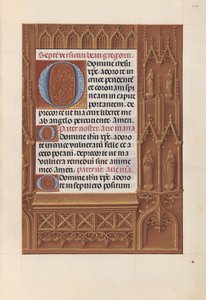 Septē versus beati gregorii.
O Domine ihesu
xp̄e adoro te in
cruce pendentē
et coronam spi
neam in capite
portantem. De
precor te ut tua crux liberet me
ab angelo percutiente. Amen.
Pater noster. Aue maria
O Domine ihū xp̄e adoro
te in cruce vulneratū felle et a
ceto potatū. deprecor te ut tua
vulnera remediū sint anime
mee. Amen. Pater nr̄. Aue ma
O Domine ihū xp̄e adoro
te in sepulcro positum